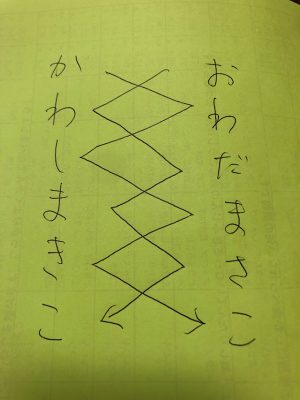 おわだまさこ
かわしまきこ